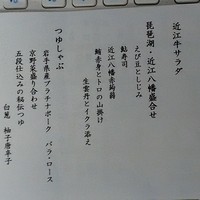 近江牛サラダ
琵琶湖・近江八幡盛合せ
えび豆としじみ
鮎寿司
近江八幡赤蒟蒻
鮪赤身とトロの山掛け
生雲丹とイクラ添え
つゆしゃぶ
岩手県産プラチナポーク　バラ・ロース
京野菜盛り合わせ
五段仕込みの秘伝つゆ
白葱　柚子唐辛子